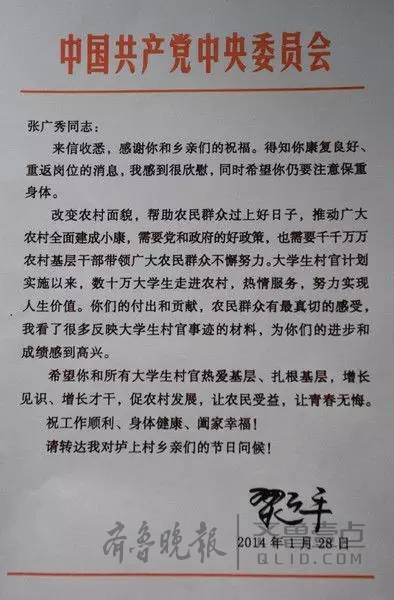 中国共产党中央委员会
张广秀同志：
来信收悉，感谢你和乡亲们的祝福。得知你康复良好、
重返岗位的消息，我感到很欣慰，同时希望你仍要注意保重
身体。
改变农村面貌，帮助农民群众过上好日子，推动广大
农村全面建成小康，需要党和政府的好政策，也需要千千万万
农村基层干部带领广大农民群众不懈努力。大学生村官计划
实施以来，数十万大学生走进农村，热情服务，努力实现
人生价值。你们的付出和贡献，农民群众有最真切的感受，
我看了很多反映大学生村官事迹的材料，为你们的进步和
成绩感到高兴。
希望你和所有大学生村官热爱基层、扎根基层，增长
见识、增长才干，促农村发展，让农民受益，让青春无悔。
祝工作顺利、身体健康、阖家幸福！
请转达我对垆上村乡亲们的节日问候！
习近平
2014年1月28日
齐鲁晚报
齐鲁壹点
QLID.COM